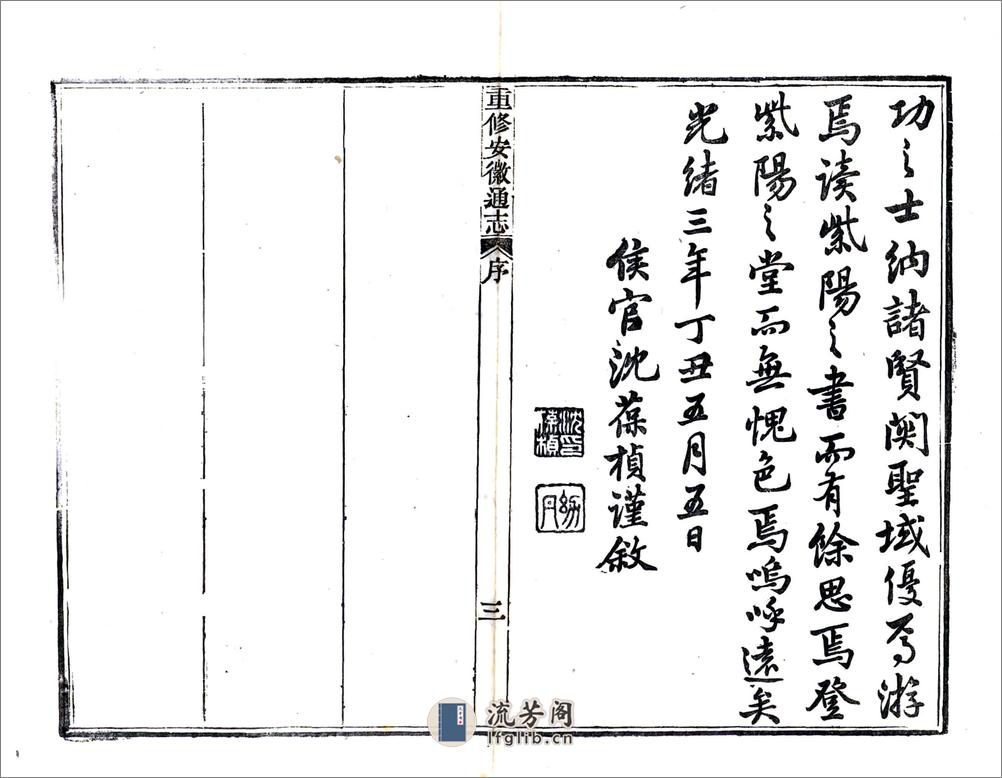 功之士納諸賢關聖域優焉游
焉读紫陽之書而有餘思焉登
紫陽之堂而無愧色焉嗚呼遠矣
光緒三年丁丑五月五日
侯官沈葆楨謹敘
沈印葆楨
幼丹
重修安徽通志 序 三
流芳阁
lfglib.cn